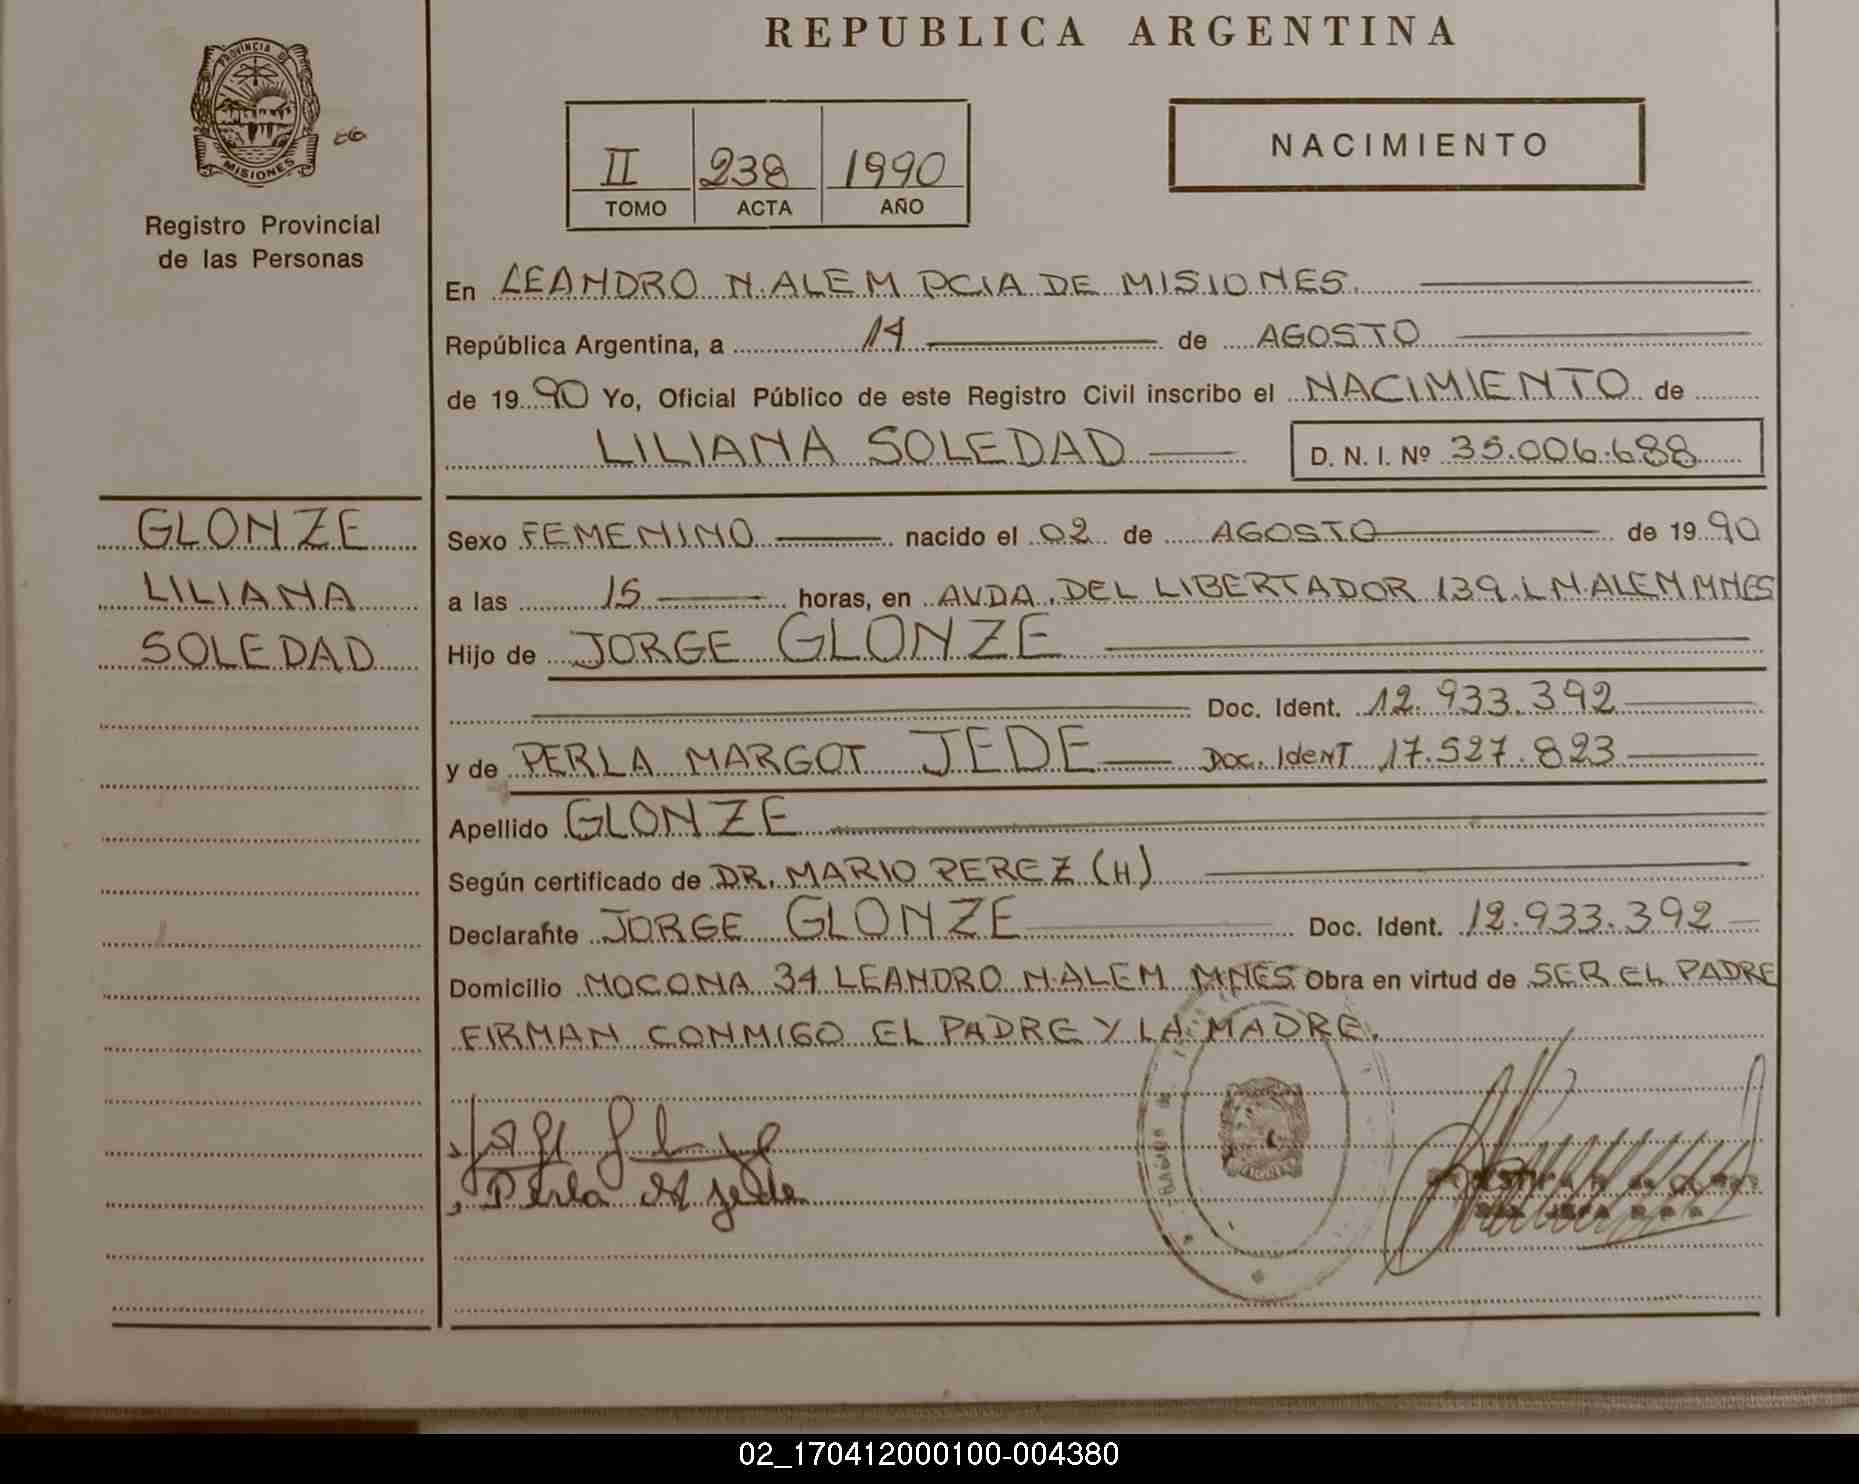 REPUBLICA ARGENTINA
PROVINCIA DE
MISIONES
Registro Provincial
de las Personas
II 238 1990
TOMO ACTA AÑO
NACIMIENTO
En LEANDRO N. ALEM PCIA DE MISIONES.
República Argentina, a 14 de AGOSTO
de 1990 Yo, Oficial Público de este Registro Civil inscribo el NACIMIENTO de
LILIANA SOLEDAD D. N. I. Nº 35.006.688
GLONZE
LILIANA
SOLEDAD
Sexo FEMENINO nacido el 02 de AGOSTO de 1990
a las 15 horas, en AVDA. DEL LIBERTADOR 139. L N. ALEM MNES
Hijo de JORGE GLONZE
Doc. Ident. 12.933.392
y de PERLA MARGOT JEDE Doc. Ident 17.527.823
Apellido GLONZE
Según certificado de DR. MARIO PEREZ (H)
Declarante JORGE GLONZE Doc. Ident. 12.933.392
Domicilio MOCONA 34 LEANDRO N. ALEM MNES Obra en virtud de SER EL PADRE
FIRMAN CONMIGO EL PADRE Y LA MADRE.
Perla M Jede
02_170412000100-004380